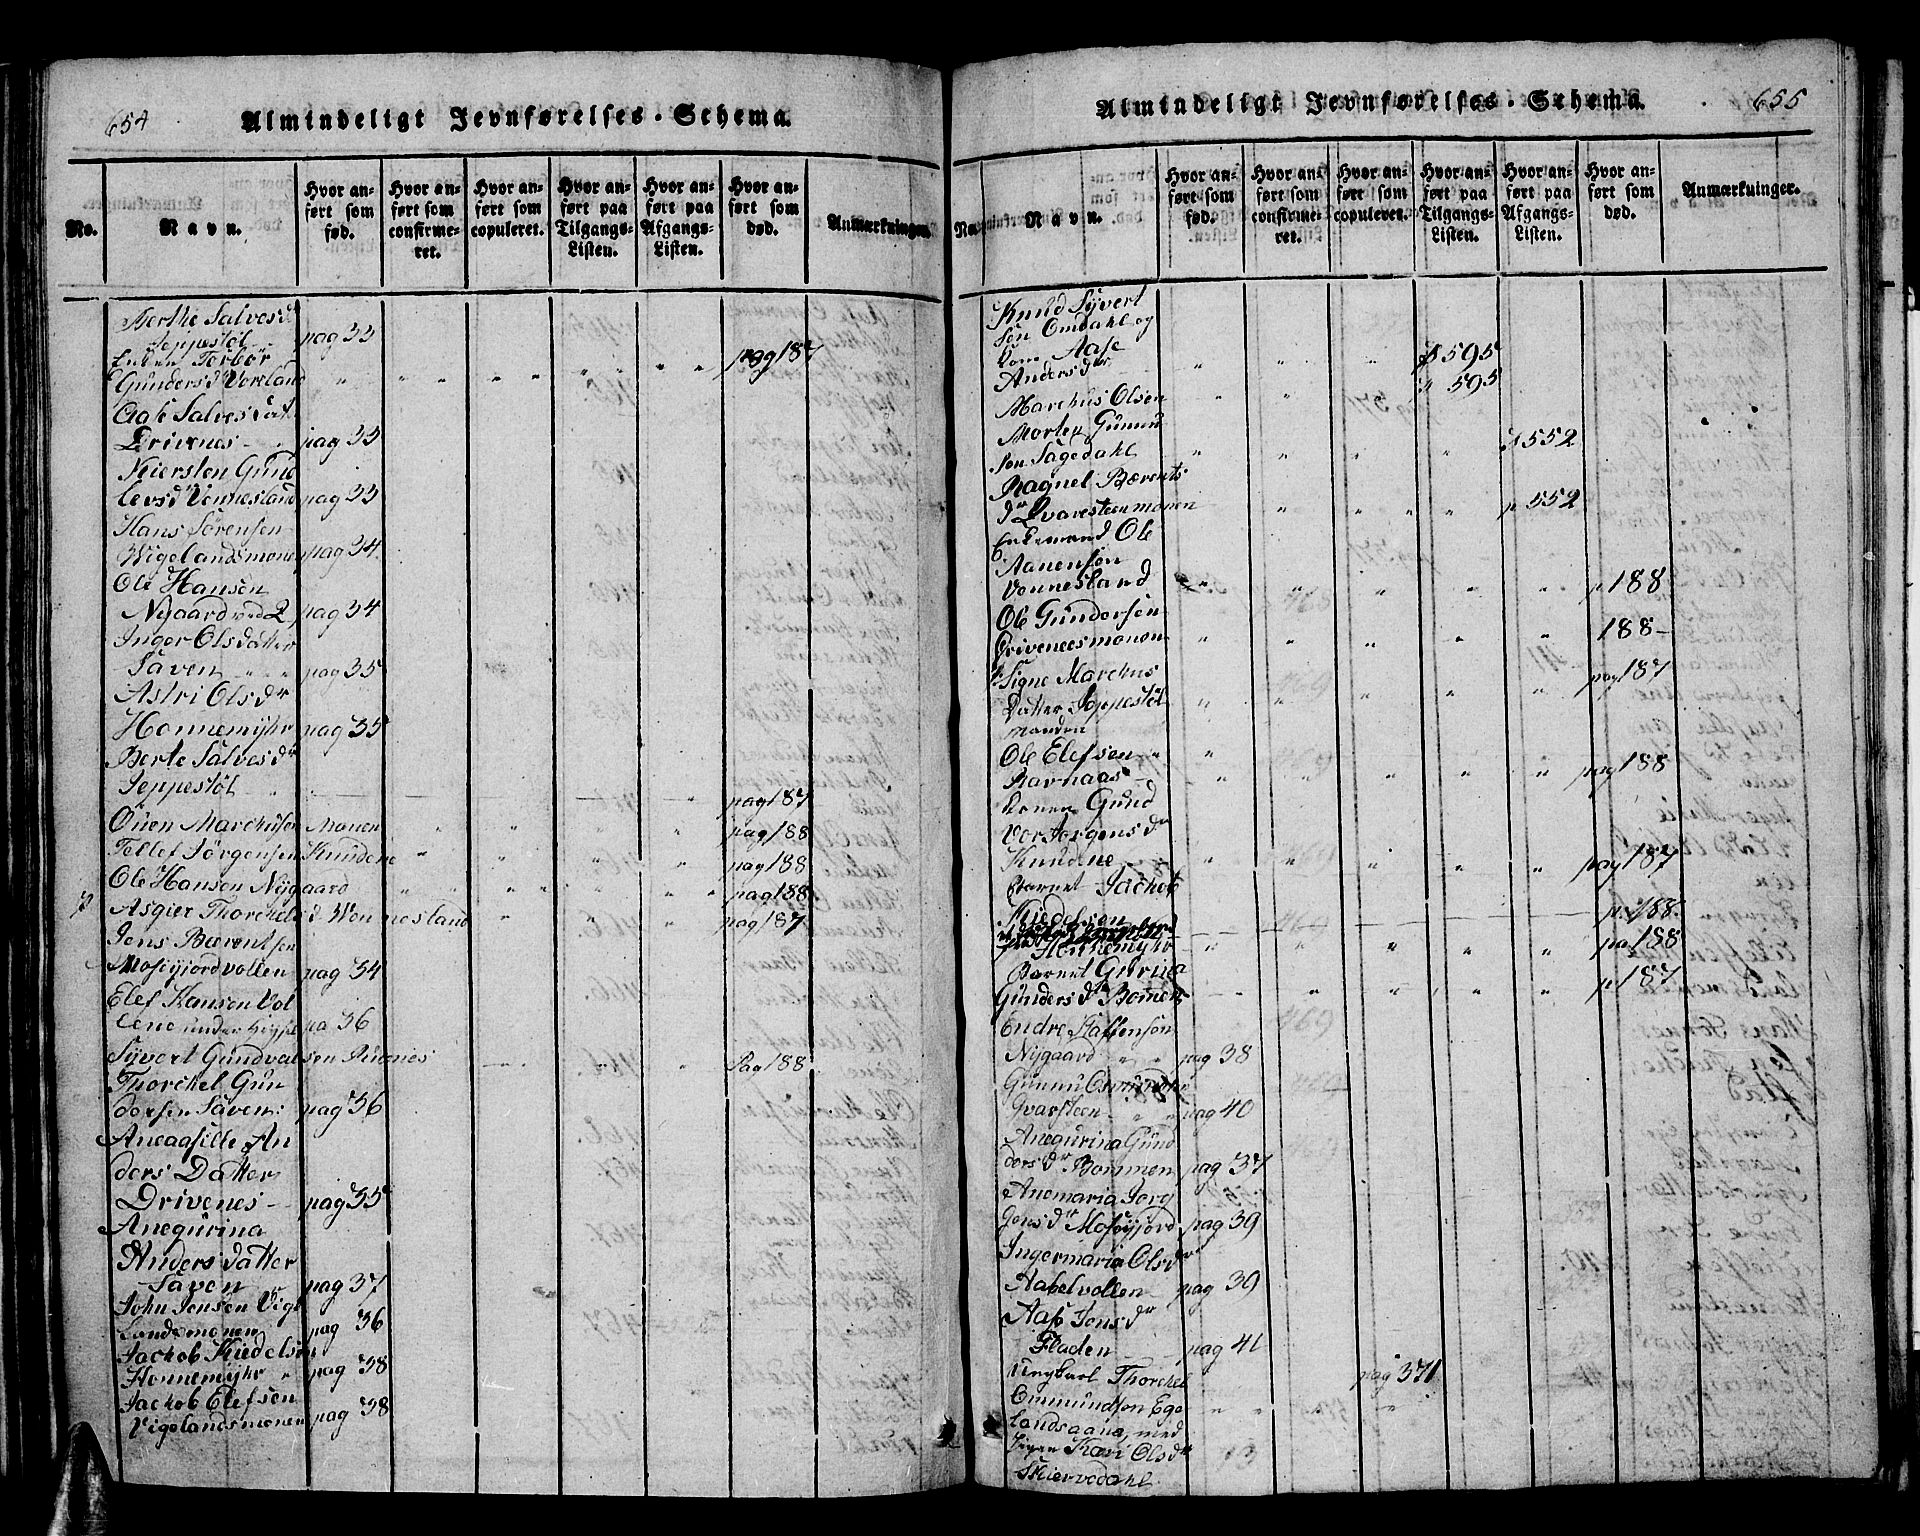 654
Almindeligt Jevnførelses-Schema.
No.
Navn.
Hvor anført som fød.
Hvor anført som confirmeret.
Hvor anført som copuleret.
Hvor anført paa Tilgangs-Listen.
Hvor anført paa Afgangs-Listen.
Hvor anført som død.
Anmærkninger.
Berthe Salvesdr
Jeppestøl pag 33
Enken Torbør
Gundersdr Vonsland " " " " " pag 187
Aase Salvesdat
Drivenes pag 33
Kiersten Gund
levsd Vennesland pag 33
Hans Sørensen
Wigelandsmonen pag 34
Ole Hansen
Nygaard No 2 pag 34
Inger Olsdatter
Saven pag 35
Astri Olsdr
Honnemyhr pag 35
Berte Salvesdr
Jeppestøl pag 187
Ouen Marchusen Monen pag 188
Tellef Jørgensen Knudene pag 188
Ole Hansen Nygaard pag 188
Asgier Thorchelsd Vennesland pag 187
Jens Bærentsen
Mosefjordvollen pag 34
Elef Hansen Vol
lene under pa 36
Syvert Gundvalsen Ruenes Pag 188
Thorchel Gun
dersen Saven pag 36
Aneaasille An
ders Datter
Drivenes pag 35
Anegurina
Anders datter
Saven pag 37
John Jensen Vige
landsmonen pag 36
Jachob Kiedelsen
Honnemyhr pag 38
Jachob Elefsen
Vigelandsmonen pag 38
655
Almindeligt Jevnførelses-Schema.
No.
Navn.
Hvor anført som fød.
Hvor anført som confirmeret.
Hvor anført som copuleret.
Hvor anført paa Tilgangs-Listen.
Hvor anført paa Afgangs-Listen.
Hvor anført som død.
Anmærkninger.
Knud Syvert
søn Omdahl og
Kone Aase
Andersdr p 595
Marchus Olsen p 595
Morten Gunnu
søn Sagedahl p 552
Ragnel Bærents
dr Qvarsteenmonen p 552
Enkemand Ole
Aanensøn
Vonnesland p 188
Ole Gundersen
Drivenesmonen 188
Signe Marchus
Datter Jeppestøl pag 187
Manden
Ole Elefsen
Ravnaas pag 188
Konen Gund
vor Jørgensdr
Knudne pag 187
Barnet Jachob
Kiedelsen p. 188.
Honnemyhr pa 188
Barnet Gurina
Gundersdr Bomen p 187
Endre Staffensøn
Nygaard pag 38
Gunnu
Qvarsteen pag 40
Anegurina Gun
dersdr Bommen pag 37
Anemaria Jørg
Jensdr Mosefjord pag 39
Ingermaria Olsdr
Aabelvollen pag 39
Aase Jensdr
Fladen pag 41
Ungkarl Thorchel pag 371
Ommundsøn Ege
landsaane, med
Pigen Kari Olsdr
Skiervedahl